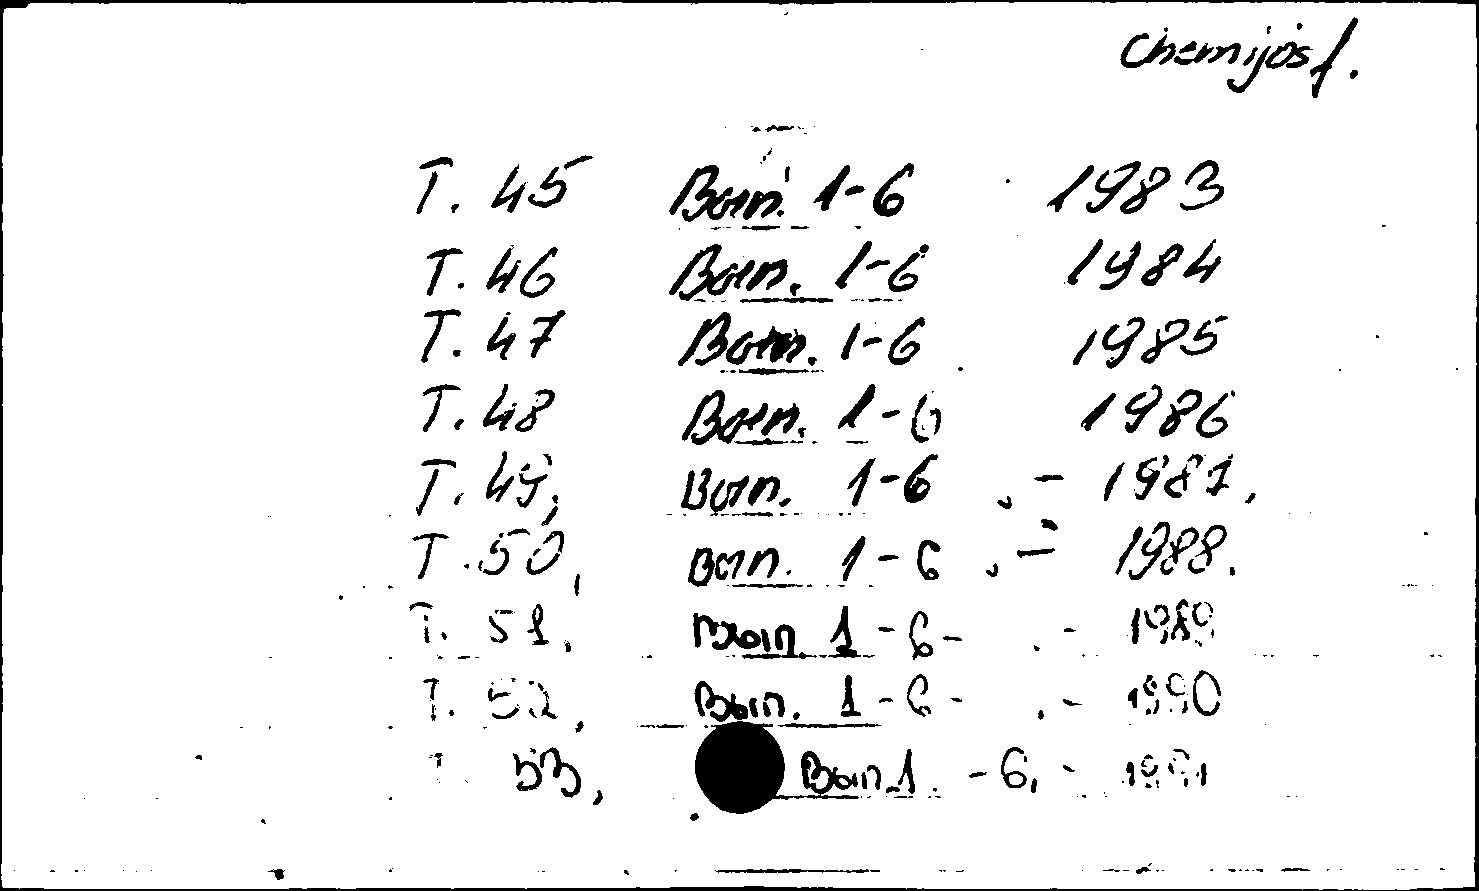 Chemijos f.
Т. 45 Вып. 1-6 1983
Т. 46 Вып. 1-6 1984
Т. 47 Вып. 1-6 1985
Т. 48 Вып. 1-6 1986
Т. 49, Вып. 1-6, - 1987.
Т. 50, Вып. 1-6, - 1988.
Т. 51, Вып. 1-6- . - 1989
Т. 52, Вып. 1-6- . - 1990
Т. 53, Вып. 1 - 6, - 1991